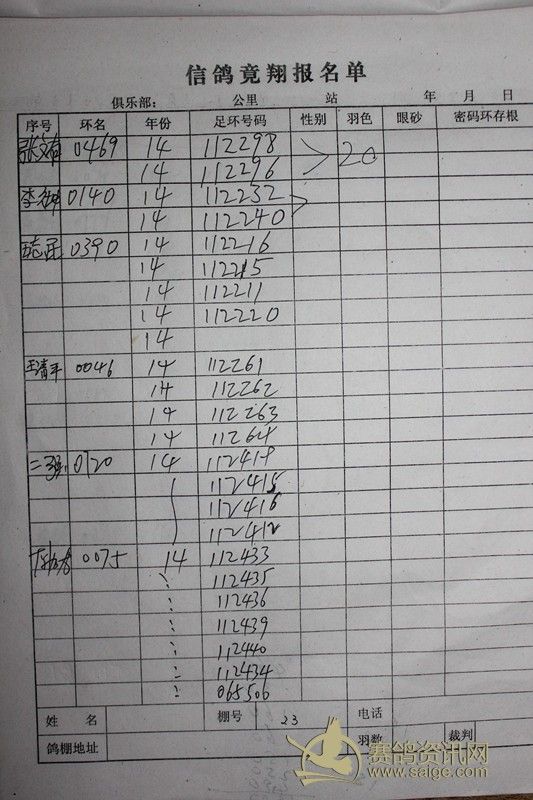 信鸽竞翔报名单
俱乐部： 公里 站 年 月 日
序号 环名 年份 足环号码 性别 羽色 眼砂 密码环存根
0469 14 112298 20
14 112296
0140 14 112232
14 112240
0390 14 112216
14 112215
14 112211
14 112220
14
王清平 0046 14 112261
14 112262
14 112263
14 11264
二强 0120 14
112415
112416
112412
0075 14 112433
112435
112436
112439
112440
112434
065506
姓名 棚号 23 电话
鸽棚地址 羽数 裁判
赛鸽资讯网
www.saige.com